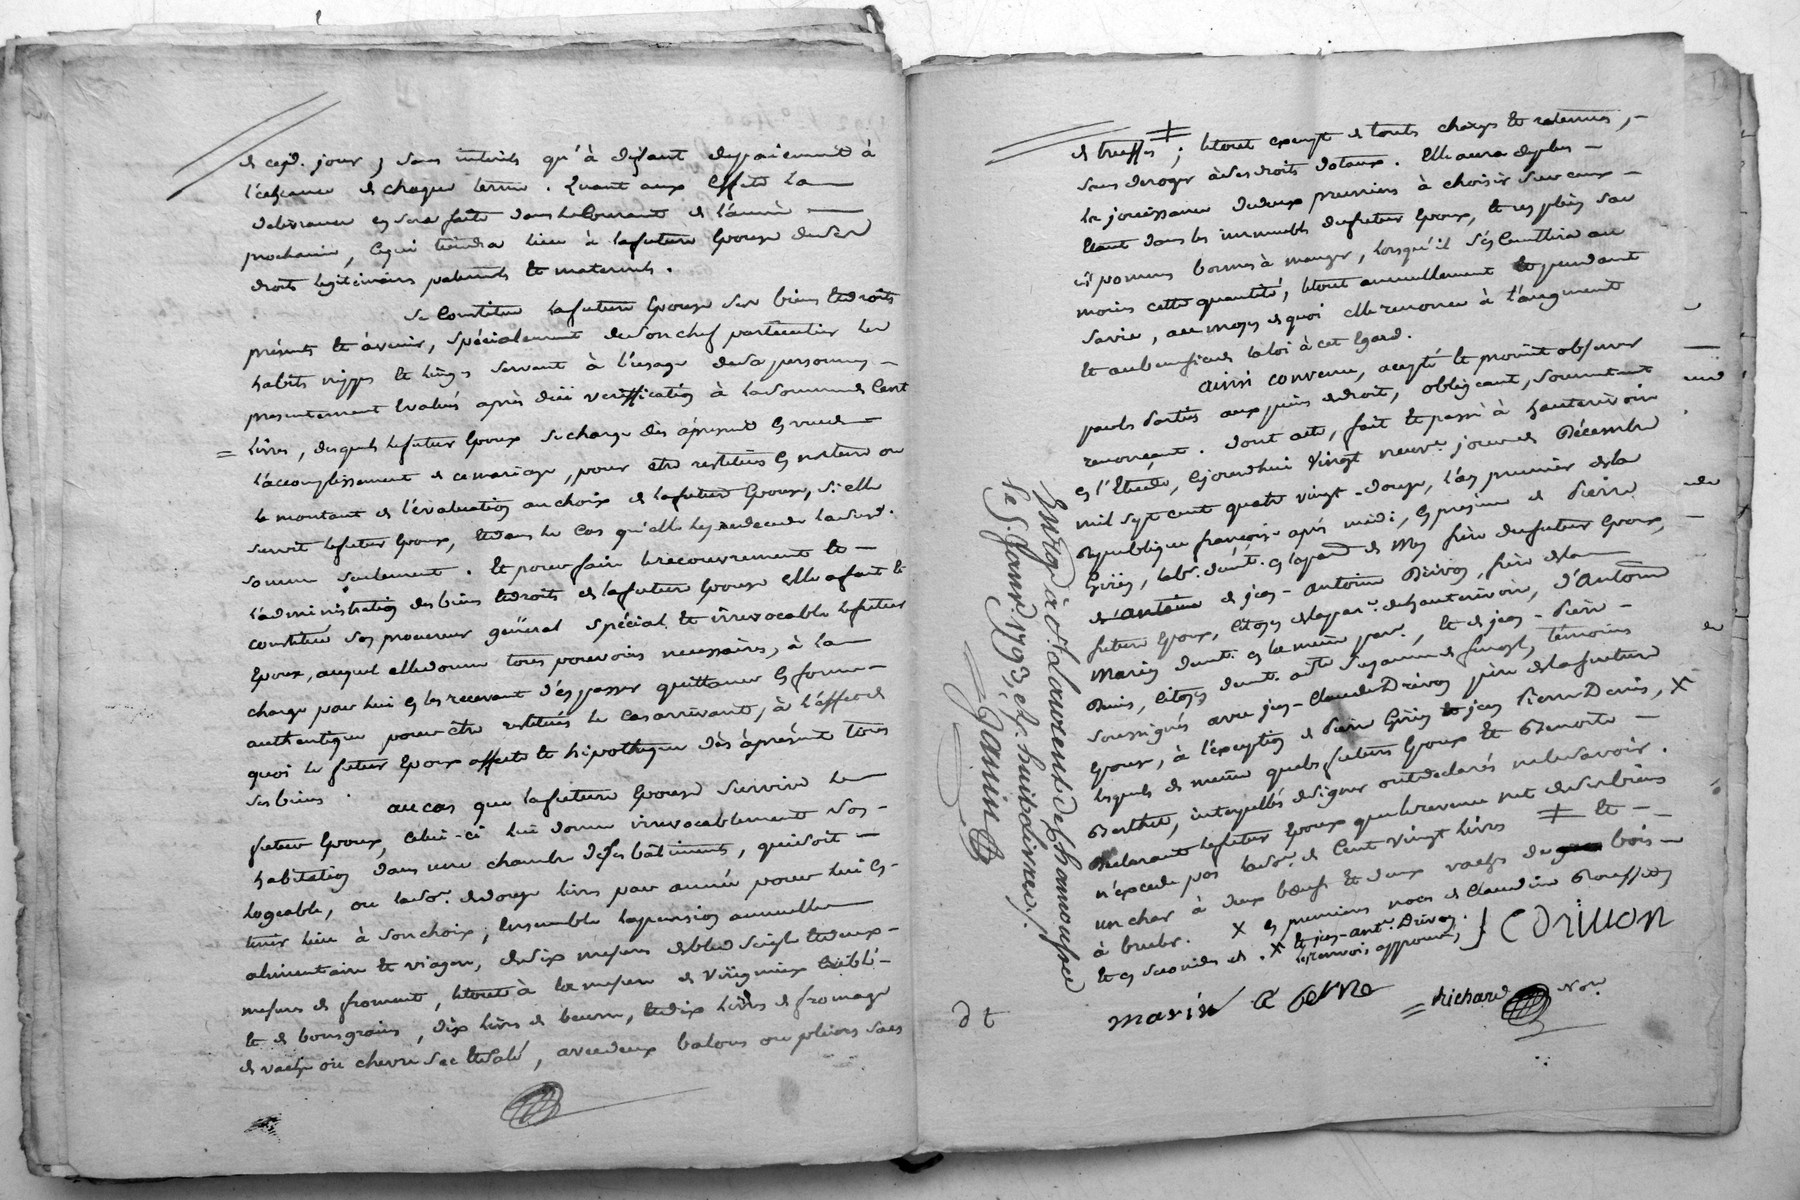 de cejd. jour, sans interêts qu'à deffaut de paiement à
l'échéance de chaque terme. Quant aux Effets la
delivrance en sera faite dans le Courant de l'année
prochaine, ce qui tiendra lieu à la future Epouse de ses
droits légitimaires paternels et maternels.
Se Constitue la future Epouse ses biens et droits
présents et à venir, spécialement de son chef particulier les
habits nippes et linges servant à l'usage de sa personne,
presentement évalués après düe vérification à la somme de Cent
livres, desquels le futur Epoux se charge dès àprésent en vue de
l'accomplissement de ce mariage, pour être restitués en nature ou
le montant de l'évaluation au choix de la future Epouse, si elle
survit le futur Epoux, et dans le Cas qu'elle la susd.
somme seulement. Et pour faire le recouvrement et
l'administration des biens et droits de la future Epouse elle a fait et
constitué son procureur général spécial et irrevocable le futur
Epoux, auquel elle donne tous pouvoirs necessaires, à la
charge par lui en les recevant d'en passer quittance en forme
authentique pour être restitués le cas arrivant, à l'effet de
quoi le futur Epoux affecte et hipothèque dès àprésent tous
ses biens.
au cas que la future Epouse survive le
futur Epoux, celui-ci lui donne irrevocablement son
habitation dans une chambre de ses bâtiments, qui soit
logeable, ou la so.e de douze livres par année pour lui en
tenir lieu à son choix; Ensemble la pension annuelle
alimentaire et viagère, de six mesures de bled seigle et deux
mesures de froment, le tout à la mesure de criblé
et de bons grains, dix livres de beurre, et dix livres de fromage
de vache ou chevre sec et salé, avec deux
de truffes; le tout exempt de touts charges et retenues,
sans deroger à ses droits dotaux. Elle aura de plus
la jouissance de deux premiers à choisir sur ceux
Etant dans les immeubles du futur Epoux, et un plein sac
de pommes bonnes à manger, lorsqu'il s'en Cueillira au
moins cette quantité, le tout annuellement et pendant
sa vie, au moyen de quoi elle renonce à l'augment
et au benefice de la loi à cet Egard.
Ainsi convenu, accepté et promit observer
par les Parties aux peines de droit, obligeant, soumettant
renonçant. dont acte, fait et passé à hauterivoire
en l'Etude, ce jourd'hui vingt neuv.e jour de Décembre
mil sept cent quatre vingt-douze, l'an premier de la
Republique françoise après midi, en présence de Pierre
labr. dem.t en la par. de frère du futur Epoux,
d'antoine de jean-antoine Drivon, frère de la
future Epouse, citoyen de la par.e de hauterivoire, d'Antoine
Marin dem.t en la même par., et de jean-Pierre
Denis, citoyen dem.t témoins
soussignés avec jean-Claude Drivon père de la future
Epouse, à l'exception de Pierre et jean Pierre Denis, X
lesquels de même que les futurs Epoux et Benoite
Berthet, interpellés de signer ont declarés ne le savoir.
Declarant le futur Epoux que le revenu net de ses biens
n'excede pas la so.e de Cent vingt livres ‡ Et
un char à deux bœufs et deux vaches de bois
à bruler. X en premieres noces de Claudine Rousset
et en secondes de. X et jean-ant.e Drivon.
les renvois approuvés J C Drivon
marin a
= Richard No.re
Enreg. à St. Laurent de Chamousset
le 8. Janv. 1793, et r. huit livres./.
Janin
dt